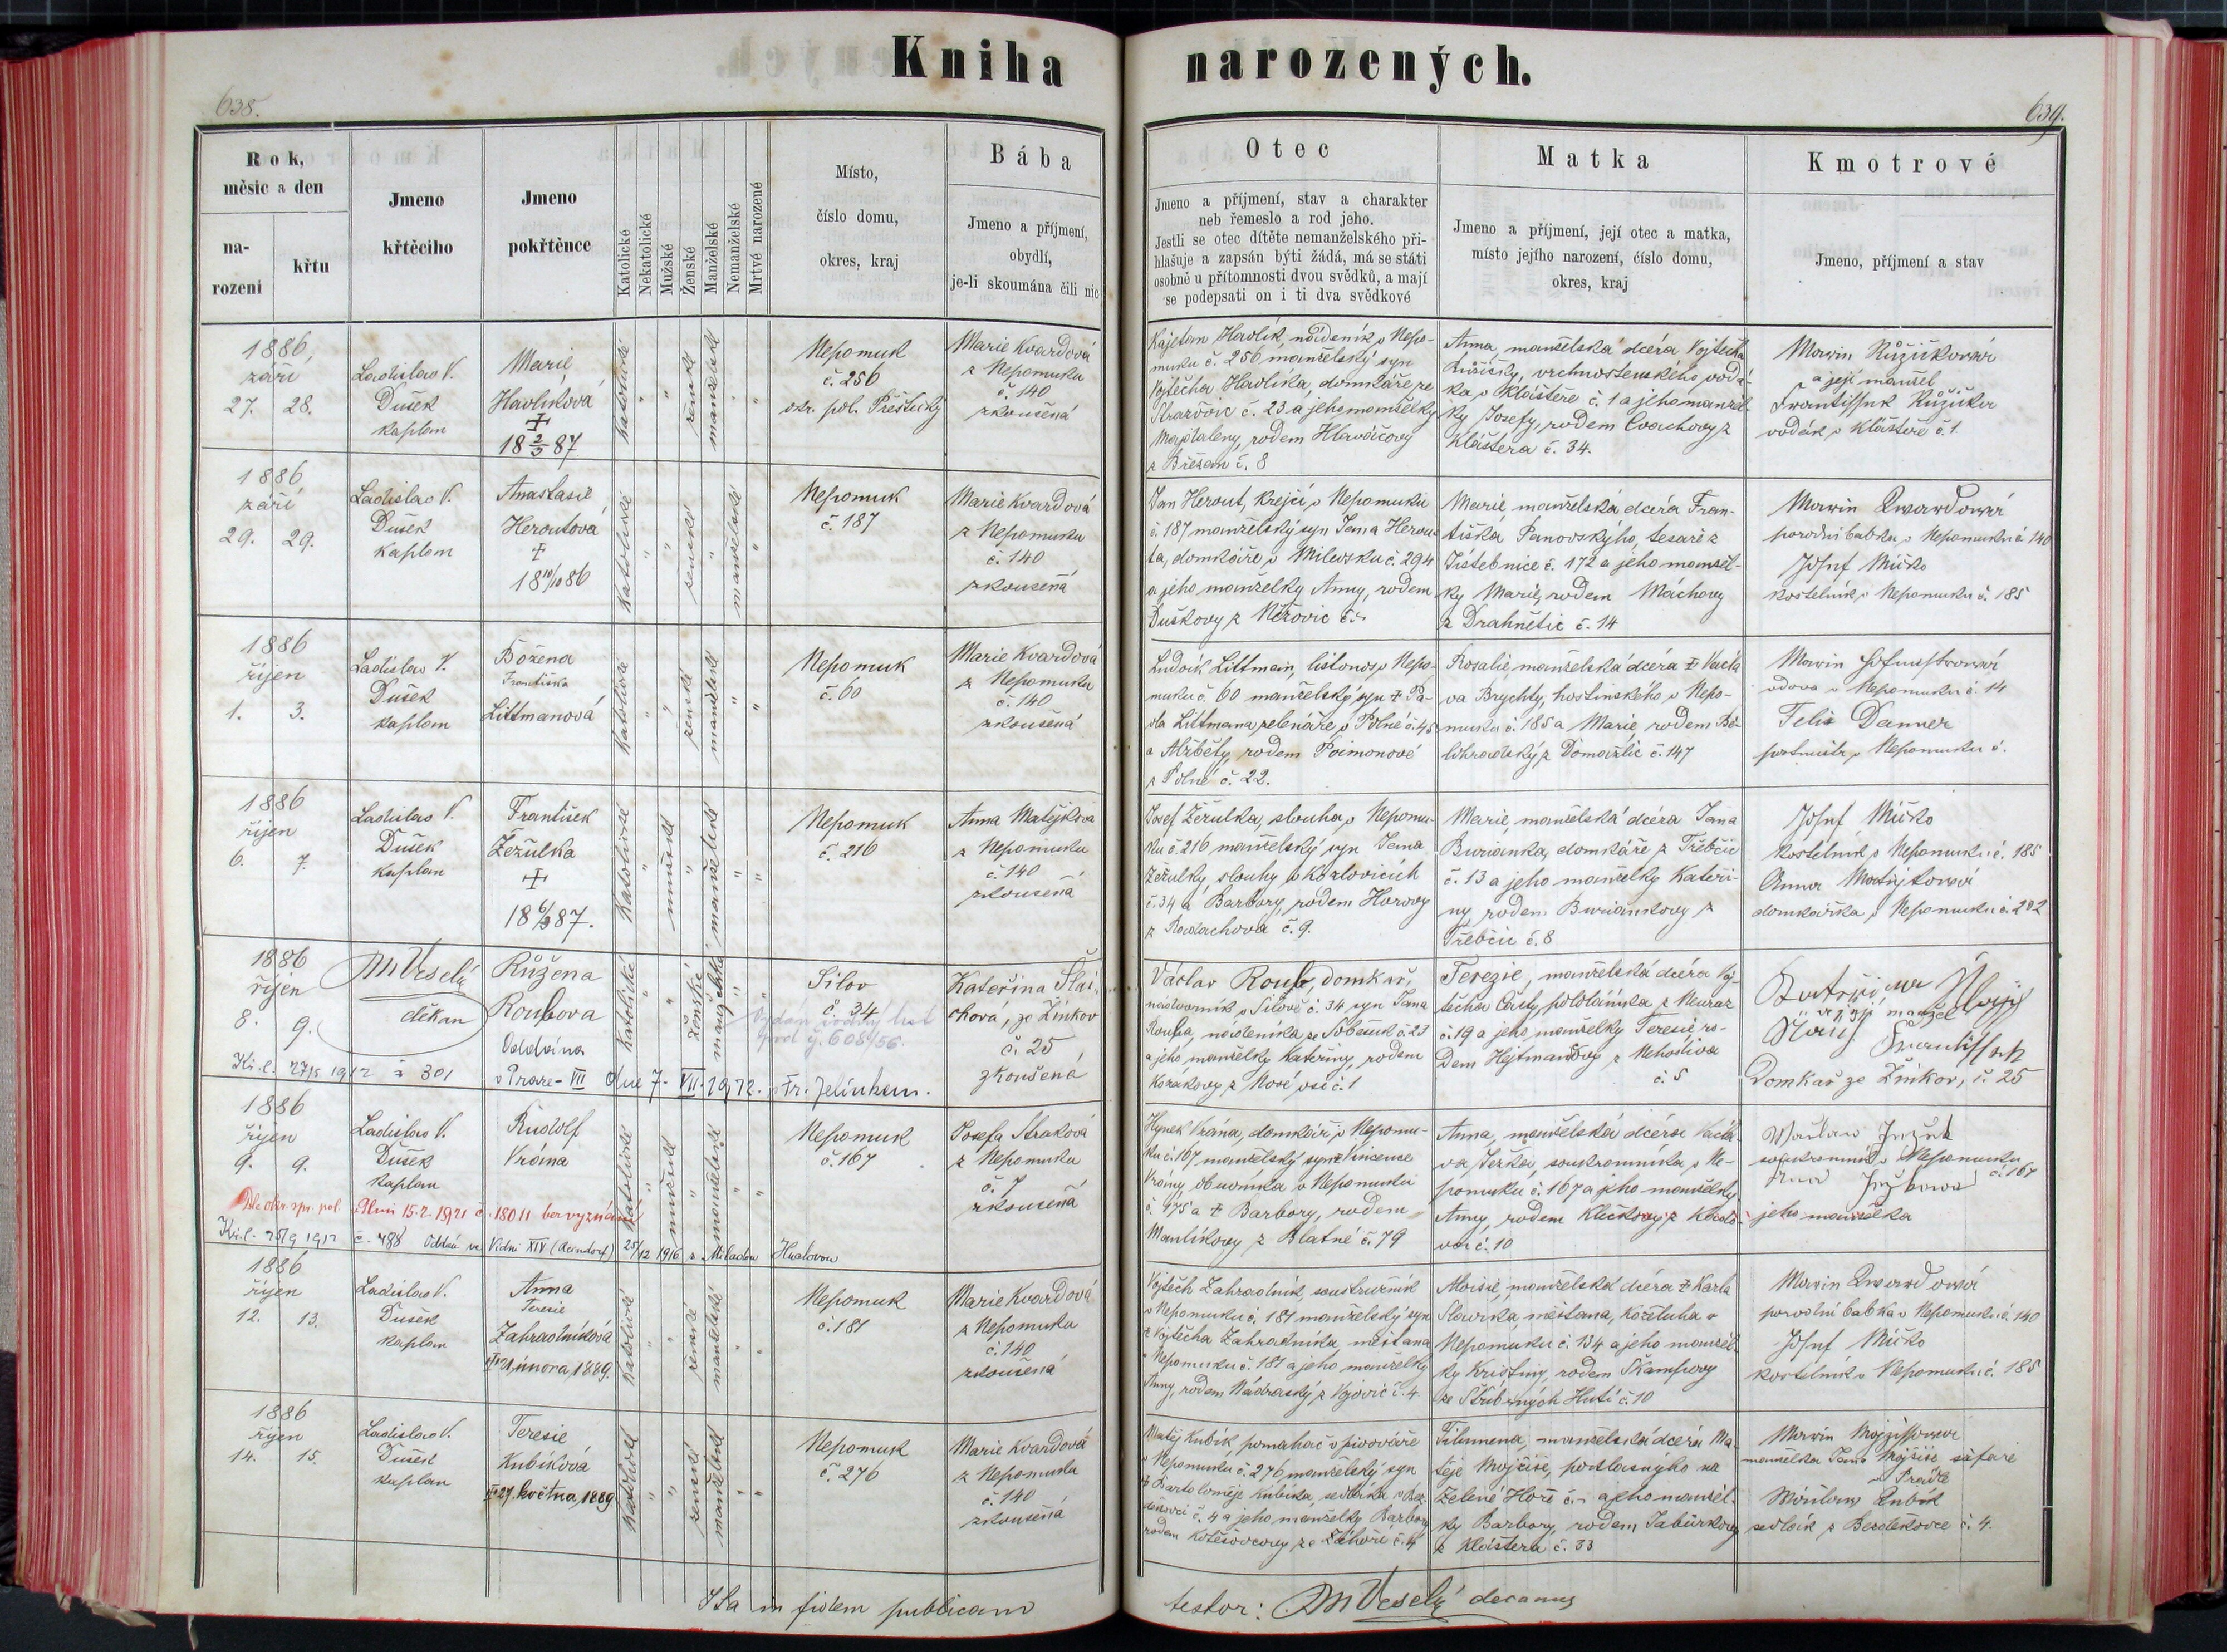 Kniha narozených.
638.
639.
Rok, měsíc a den
na-
rození
křtu
Jmeno
křtěcího
Jmeno
pokřtěnce
Katolické
Nekatolické
Mužské
Ženské
Manželské
Nemanželské
Mrtvé narozené
Místo,
číslo domu,
okres, kraj
Bába
Jmeno a příjmení,
obydlí,
je-li skoumána čili nic
Otec
Jmeno a příjmení, stav a charakter
neb řemeslo a rod jeho.
Jestli se otec dítěte nemanželského při-
hlašuje a zapsán býti žádá, má se státi
osobně u přítomnosti dvou svědků, a mají
se podepsati on i ti dva svědkové
Matka
Jmeno a příjmení, její otec a matka,
místo jejího narození, číslo domu,
okres, kraj
Kmotrové
Jmeno, příjmení a stav
1886,
září
27. 28.
Ladislav V.
Dušek
kaplan
Marie
Havlíková
18 2/3 87
katolické
ženské
manželské
Nepomuk
č. 256
okr. pol. Přeštický
Marie Kvardová
z Nepomuku
č. 140
zkoušená
Kajetan Havlík, nádeník v Nepo-
muku č. 256 manželský syn
Vojtěcha Havlíka, domkáře ze
č. 23 a jeho manželky
Magdaleny, rodem Hlaváčovy
z Břežan č. 8
Anna, manželská dcéra Vojtěcha
Růžičky, vrchnostenského vodá-
ka v Klášteře č. 1 a jeho manžel-
ky Josefy, rodem
Kláštera č. 34.
Marie Růžičková
a její manžel
František Růžička
vodák v Klášteře č. 1
1886
září
29. 29.
Ladislav V.
Dušek
kaplan
Anastasie
Heroutová
18 10/10 86
katolické
ženské
manželské
Nepomuk
č. 187
Marie Kvardová
z Nepomuku
č. 140
zkoušená
Jan Herout, krejčí v Nepomuku
č. 187 manželský syn Jana Herou-
ta, domkáře v Milevsku č. 294
a jeho manželky Anny, rodem
Duškovy z
Marie manželská dcéra Fran-
tiška Panovského, tesaře z
Jistebnice č. 172 a jeho manžel-
ky Marie, rodem Máchovy
z Drahnětic č. 14
Marie Kwardová
porodní babka v Nepomuku č. 140
Josef Míčko
kostelník v Nepomuku č. 185
1886
říjen
1. 3.
Ladislav V.
Dušek
kaplan
Božena
Františka
Littmanová
katolické
ženské
manželské
Nepomuk
č. 60
Marie Kvardová
z Nepomuku
č. 140
zkoušená
Ludvík Littman, listonoš v Nepo-
muku č. 60 manželský syn † Pa-
vla Littmana, zelenáře v Polné č. 45
a Alžběty, rodem
z Polné č. 22.
Rosalie, manželská dcéra † Václa
va Brychty, hostinského v Nepo-
muku č. 185 a Marie, rodem Bě-
lohradský z Domažlic č. 147
Marie
vdova v Nepomuku č. 14
Felix Danner
v Nepomuku č.
1886
říjen
6. 7.
Ladislav V.
Dušek
kaplan
František
Žežulka
18 6/3 87.
katolické
mužské
manželské
Nepomuk
č. 216
Anna Matějková
z Nepomuku
č. 140
zkoušená
Josef Žežulka, slouha v Nepomu-
ku č. 216 manželský syn Jana
Žežulky, slouhy v Kozlovicích
č. 34 a Barbory, rodem Horovy
z Radachova č. 9.
Marie, manželská dcéra Jana
Burianka, domkáře z Třebčic
č. 13 a jeho manželky Kateři-
ny, rodem Buriankovy z
Třebčic č. 8
Josef Míčko
kostelník v Nepomuku č. 185
Anna Matějková
domkářka v Nepomuku č. 202
1886
říjen
8. 9.
M Veselý
děkan
Růžena
Roubova
Oddána
v Praze-VII dne 7. VII. 1912. s Fr. Jelínkem.
katolické
ženské
manželské
Silov
č. 34
Vydán rodný list
pod čj. 608/56.
Kateřina Šlai-
chova, ze Žinkov
č. 25
zkoušená
Václav Roub, domkář,
v Silově č. 34 syn Jana
Rouba, nádeníka ze Soběsuk č. 23
a jeho manželky Kateřiny, rodem
Korákovy z Nové vsi č. 1
Terezie, manželská dcéra Voj-
těcha pololáníka z Neuraz
č. 19 a jeho manželky Teresie ro-
dem Hejtmanovy z Nehodiva
č. 5
Kateřina
a její manžel
František
Domkář ze Žinkov, č. 25
1886
říjen
9. 9.
Ladislav V.
Dušek
kaplan
Rudolf
Vrána
katolické
mužské
manželské
Nepomuk
č. 167
Josefa Straková
z Nepomuku
č. 7
zkoušená
Dle okr. spr. pol. Plzni 15.2.1921 č. 18011 bez vyznání
č. 488 Oddán ve Vídni XIV (Reindorf) 25/12 1916 s Miladou
Hynek Vrána, domkář v Nepomu-
ku č. 167 manželský syn † Vincence
Vrány, obuvníka v Nepomuku
č. 175 a † Barbory, rodem
Maulíkovy z Blatné č. 79
Anna, manželská dcéra Václa-
va Ježka, soukromníka v Ne-
pomuku č. 167 a jeho manželky
Anny, rodem
č. 10
Václav Ježek
soukromník v Nepomuku
č. 167
Anna Ježková
jeho manželka
1886
říjen
12. 13.
Ladislav V.
Dušek
kaplan
Anna
Teresie
Zahradníková
† 21. února 1889.
katolické
ženské
manželské
Nepomuk
č. 181
Marie Kvardová
z Nepomuku
č. 140
zkoušená
Vojtěch Zahradník, soustružník
v Nepomuku č. 181 manželský syn
† Vojtěcha Zahradníka, měšťana
v Nepomuku č. 181 a jeho manželky
Anny, rodem
Aloisie, manželská dcéra † Karla
Slavíka měšťana, koželuha v
Nepomuku č. 134 a jeho manžel-
ky Kristiny, rodem Škampovy
ze Stříbrných Hutí č. 10
Marie Kwardová
porodní babka v Nepomuku č. 140
Josef Míčko
kostelník v Nepomuku č. 185
1886
říjen
14. 15.
Ladislav V.
Dušek
kaplan
Teresie
Kubíková
† 27. května 1889
katolické
ženské
manželské
Nepomuk
č. 276
Marie Kvardová
z Nepomuku
č. 140
zkoušená
Matěj Kubík, pomahač v pivováře
v Nepomuku č. 276 manželský syn
† Bartoloměje Kubíka, sedláka v Bez-
děkovci č. 4 a jeho manželky Barbory
rodem Kotěšovcovy ze Záhoří č. 4
Filumena, manželská dcéra Ma-
těje Mojžíše, na
Zelené Hoře č. - a jeho manžel-
ky Barbory, rodem Taburkovy
z Kláštera č. 33
Marie Mojžíšová
manželka Jana Mojžíše šafáře
v Prádle
Kubík
sedlák z Bezděkovce č. 4.
Ita in fidem publicam
testor: M Veselý decanus